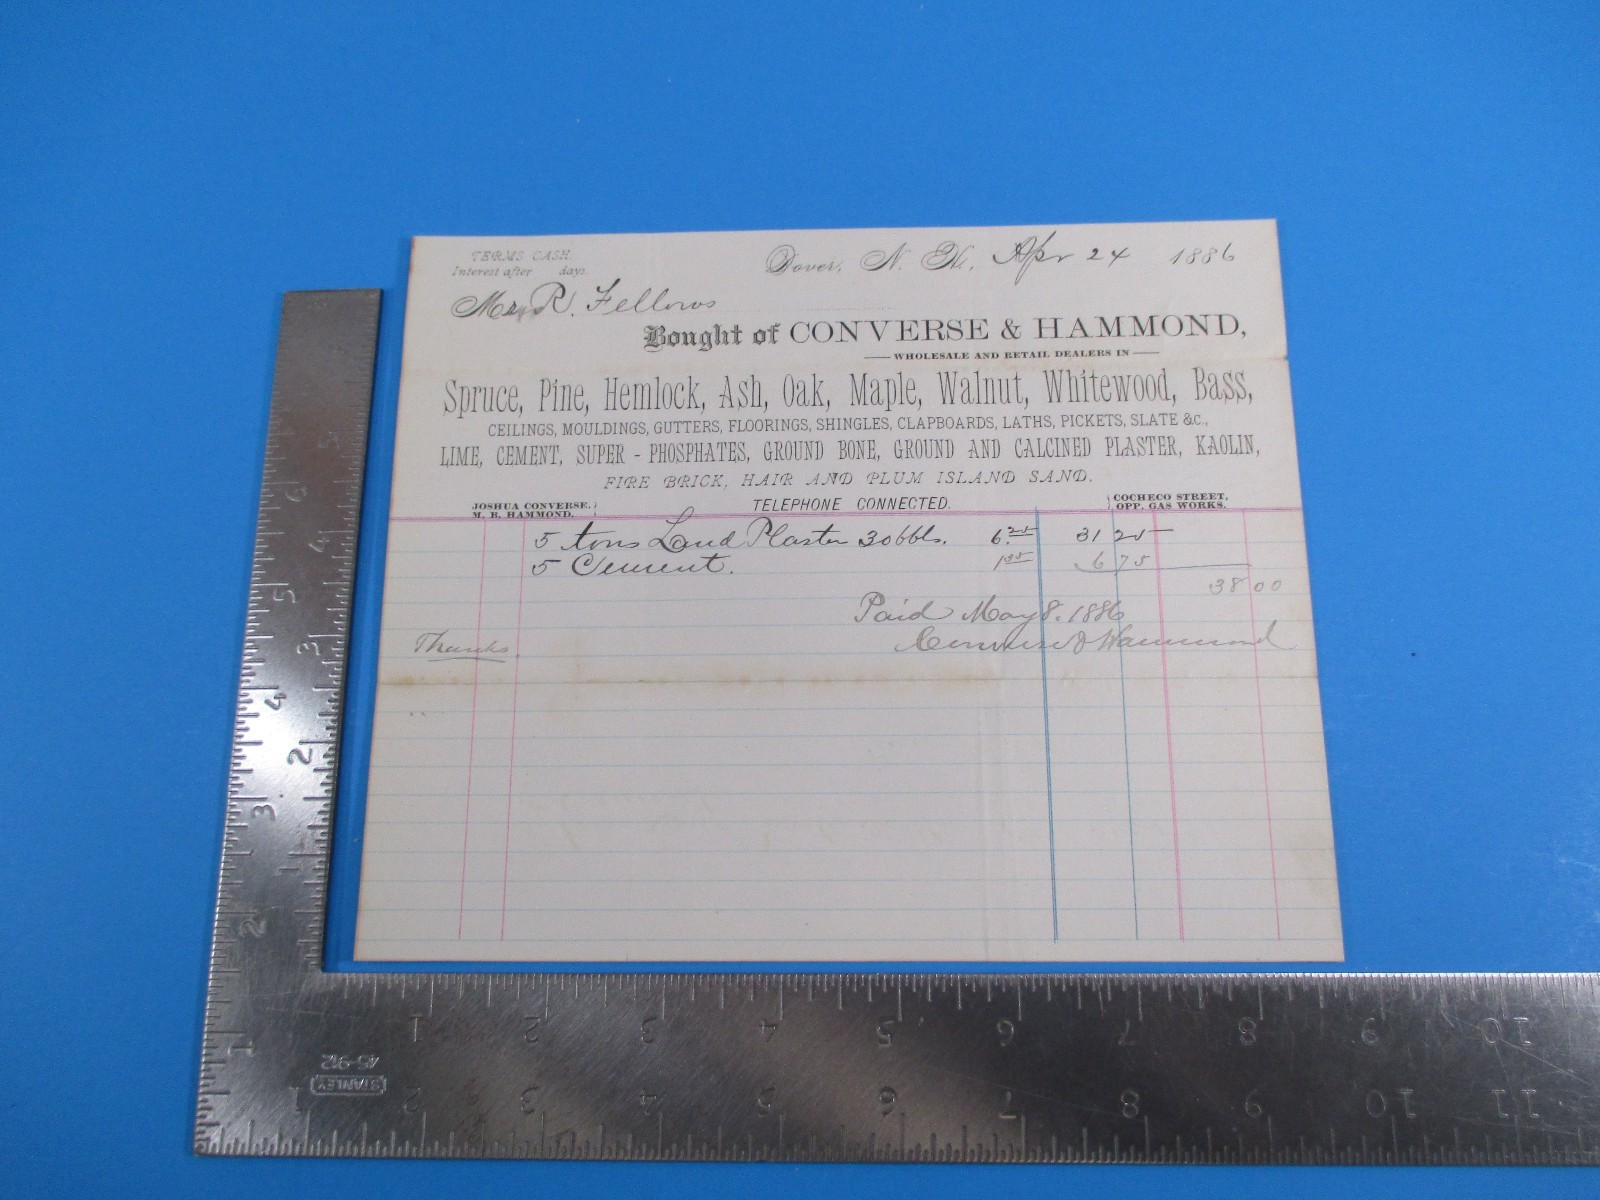 TERMS CASH.
Interest after days.
Dover, N. H. Apr 24 1886
Mr R. Fellows
Bought of CONVERSE & HAMMOND,
WHOLESALE AND RETAIL DEALERS IN
Spruce, Pine, Hemlock, Ash, Oak, Maple, Walnut, Whitewood, Bass,
CEILINGS, MOULDINGS, GUTTERS, FLOORINGS, SHINGLES, CLAPBOARDS, LATHS, PICKETS, SLATE &C.,
LIME, CEMENT, SUPER - PHOSPHATES, GROUND BONE, GROUND AND CALCINED PLASTER, KAOLIN,
FIRE BRICK, HAIR AND PLUM ISLAND SAND.
JOSHUA CONVERSE.
M. B. HAMMOND.
TELEPHONE CONNECTED.
COCHECO STREET,
OPP. GAS WORKS.
5 tons Land Plaster 30 bbls. 6.25 31 25
5 Cement. 1.35 6 75
38 00
Paid May 8. 1886
Thanks. Converse & Hammond
6 5 4 3 2 1
5 4 3 2 1
1 2 3 4 5 6 7 8 9 10
45-912
STANLEY
1 2 3 4 5 6 7 8 9 10 11